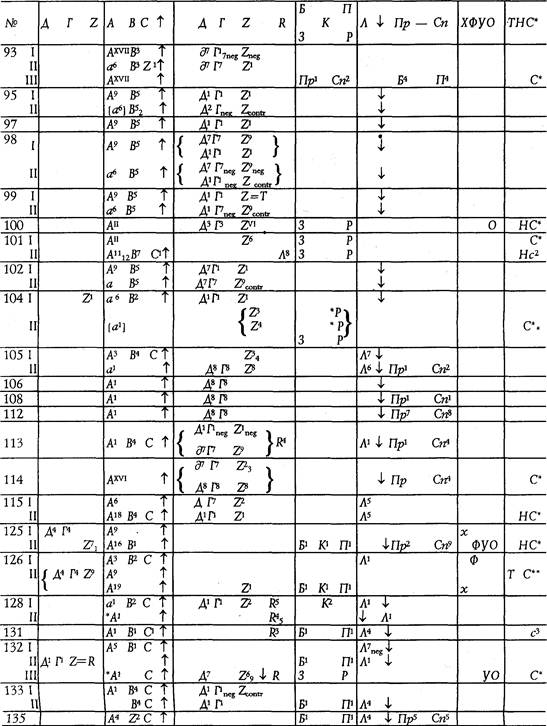 Б П
№ Д Г Z A B C ↑ Д Г Z R K Л ↓ Пр — Сп ХФУО ТНС*
З Р
93 I A^XVII B³ ↑ ∂⁷ Г¹₇neg Z_neg
II a⁶ B³ Z¹ ↑ ∂⁷ Г⁷ Z¹
III A^XVII ↑ Пр¹ Сп² Б⁴ П⁴ С*
95 I A⁹ B⁵ ↑ Д¹ Г¹ Z¹ ↓
II [a⁶] B⁵₂ ↑ Д² Г_neg Z_contr ↓
97 A⁹ B⁵ ↑ Д¹ Г¹ Z¹ ↓
98 I A⁹ B⁵ ↑ { Д⁷ Г⁷ Z⁹ } ↓
Д¹ Г¹ Z¹
II a⁶ B⁵ ↑ { Д⁷ Г⁷_neg Z⁹_neg } ↓
Д¹ Г¹_neg Z_contr
99 I A⁹ B⁵ ↑ Д¹ Г¹ Z=T ↓
II a⁶ B⁵ ↑ Д¹ Г⁷_neg Z⁹_contr ↓
100 A^II Д³ Г³ Z^VI З Р О НС*
101 I A^II Z⁶ З Р С*
II A¹¹₁₂ B⁷ C¹ ↑ Л⁸ З Р Нс²
102 I A⁹ B⁵ ↑ Д⁷ Г¹ Z¹ ↓
II a B⁵ ↑ Д⁷ Г⁷ Z⁹_contr ↓
104 I Z¹ a⁶ B² ↑ Д¹ Г¹ Z¹ ↓
II [a¹] { Z³ *Р }
Z⁴ *Р С**
З Р
105 I A³ B⁴ C ↑ Z³₄ Л⁷ ↓
II a¹ ↑ Д⁸ Г⁸ Z⁸ Л⁶ ↓ Пр¹ Сп²
106 A¹ ↑ Д⁸ Г⁸ ↓
108 A¹ ↑ Д⁸ Г⁸ ↓ Пр¹ Сп¹
112 A¹ ↑ Д⁸ Г⁸ ↓ Пр⁷ Сп⁸
113 A¹ B⁴ C ↑ { Д¹ Г¹_neg Z¹_neg } R⁴ Л¹ ↓ Пр¹ Сп⁴
∂⁷ Г⁷ Z⁹
114 A^XVI ↑ { ∂⁷ Г⁷ Z²₃ } ↓ Пр Сп⁴ С*
Д⁸ Г⁸ Z⁸
115 I A⁶ ↑ Д Г⁷ Z² Л⁵
II A¹⁸ B⁴ C ↑ Д¹ Г¹ Z¹ Л⁵ НС*
125 I Д⁴ Г⁴ A⁹ ↑ х
II Z⁷₁ A¹⁶ B¹ ↑ Б¹ K¹ П¹ ↓ Пр² Сп⁹ ФУО НС*
126 I A³ B² C ↑ Л¹ Ф
II { Д⁴ Г⁴ Z⁹ A⁹ ↑ Т С**
A¹⁹ ↑ Z¹ Б¹ K¹ П¹ х
128 I a¹ B² C ↑ Д¹ Г¹ Z² R⁵ K² Л¹ ↓
II *A¹ ↑ R⁴₅ ↓ Л¹
131 A¹ B¹ C¹ ↑ R³ Б¹ П¹ Л⁴ ↓ с³
132 I A⁵ B¹ C ↑ Л⁷_neg ↓
II Д¹ Г¹ Z=R ↑ Б¹ П¹ Л¹ ↓
III *A¹ C ↑ Д⁷ Z⁶₉ ↓ R З Р УО С*
133 I A¹ B⁴ C ↑ Д¹ Г¹_neg Z_contr
II B⁴ C ↑ Д¹ Г¹ Б¹ П¹ Л⁴ ↓
135 A⁴ Z² C ↑ Б¹ П¹ Л⁴ ↓ Пр⁵ Сп⁵